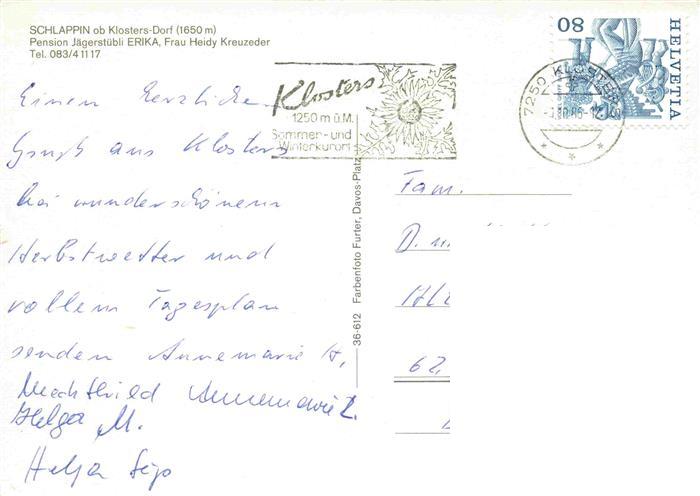 SCHLAPPIN ob Klosters-Dorf (1650 m)
Pension Jägerstübli ERIKA, Frau Heidy Kreuzeder
Tel. 083/41117
Einen herzlichen
Gruß aus Klosters
bei wunderschönem
Herbstwetter und
vollem Tagesplan
senden Annemarie H,
Mechthild Annemarie L.
Helga M.
Helga
Klosters
1250 m ü.M.
Sommer- und
Winterkurort
7250 KLOSTERS
80
HELVETIA
36-612 Farbenfoto Furter, Davos-Platz
Fam.
D.
62,